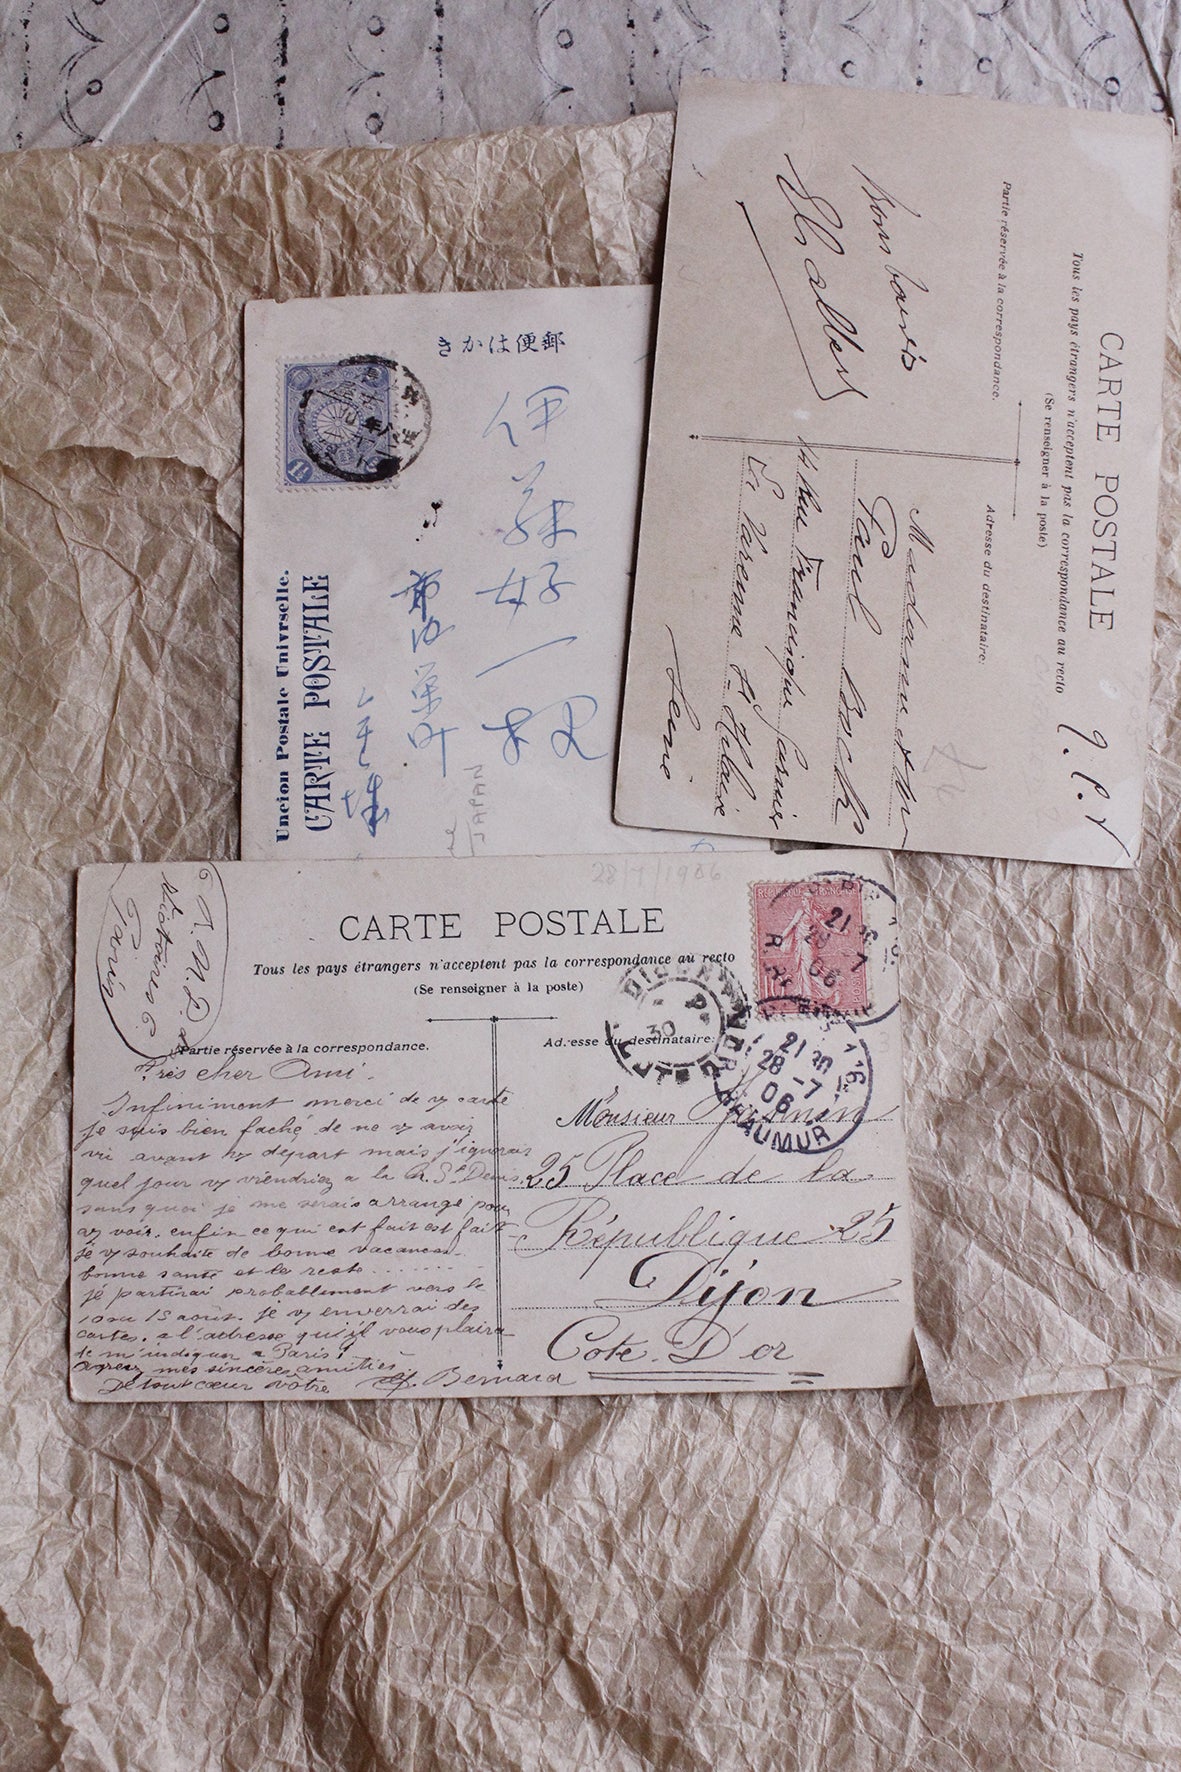 CARTE POSTALE
Tous les pays étrangers n'acceptent pas la correspondance au recto
(Se renseigner à la poste)
Partie réservée à la correspondance.
Adresse du destinataire.
Bons baisers
Madame et Mr
Paul
La Varenne St-Hilaire
Seine
郵便はかき
1½
Uncion Postale Univrselle.
CARTE POSTALE
JAPAN
28/7/1906
CARTE POSTALE
Tous les pays étrangers n'acceptent pas la correspondance au recto
(Se renseigner à la poste)
Partie réservée à la correspondance.
Adresse du destinataire.
REPUBLIQUE FRANÇAISE
10
21
28-7
06
30
REAUMUR
6 N. D. des
Victoires 6
Paris
Très cher Ami.
Infiniment merci de vs carte
je suis bien faché de ne vs avoir
vu avant vs départ mais j'ignorais
quel jour vs viendriez a la R. St Denis.
sans quoi je me serais arrangé pour
vs voir. enfin ce qui est fait est fait
je vs souhaite de bonne vacances
bonne santé et le reste........
je partirai probablement vers le
10 ou 15 août. je vs enverrai des
cartes. a l'adresse qu'il vous plaira
de m'indiquer a Paris!
agréez mes sincères amitiés
De tout cœur vôtre Bernard
Monsieur
25 Place de la
République 25
Dijon
Cote. D'or